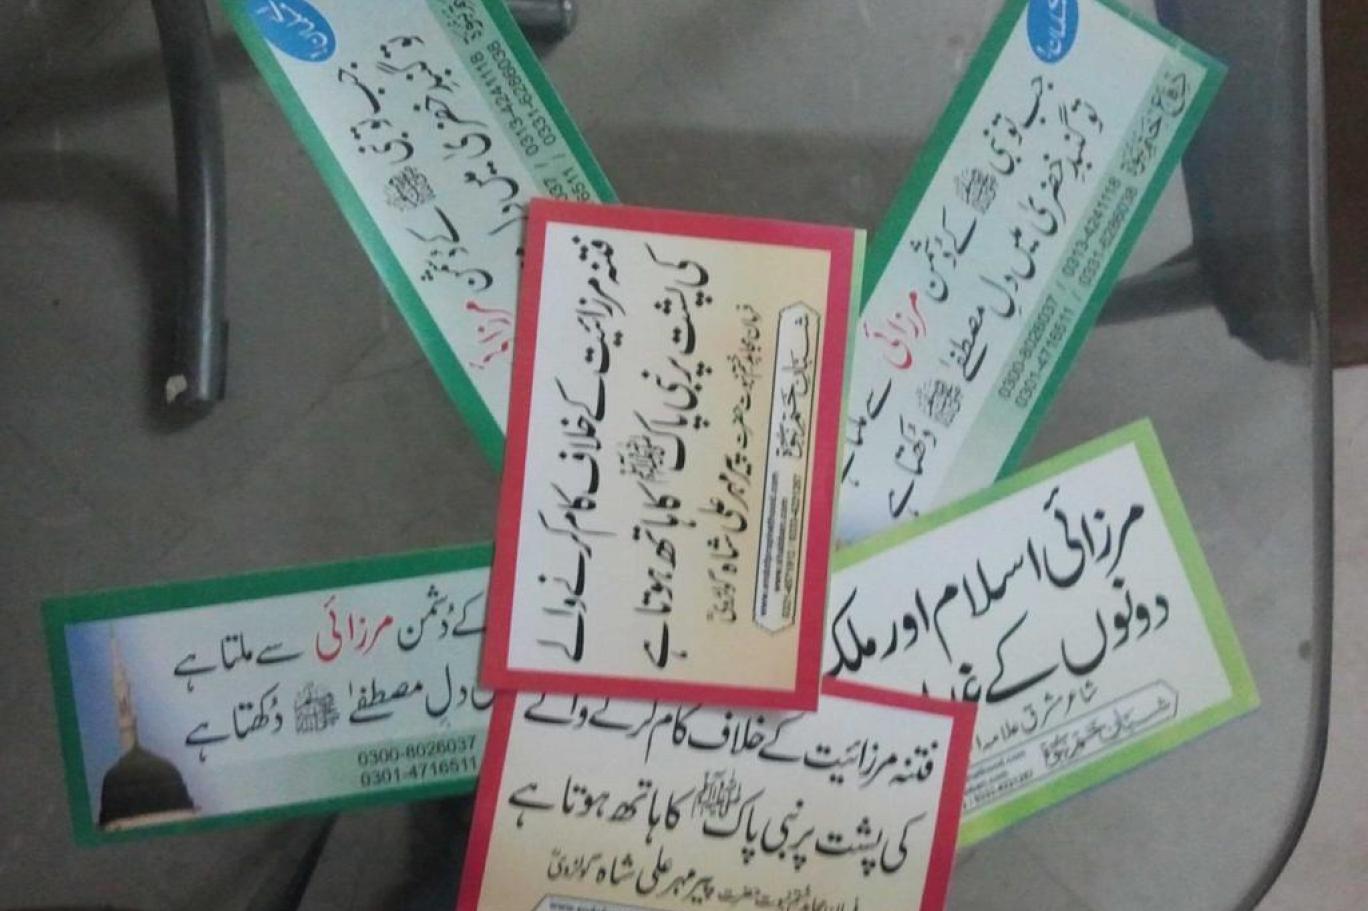 فتنہ مرزائیت کے خلاف کام کرنے والے
کی پشت پر نبی پاک ﷺ کا ہاتھ ہوتا ہے
فرمان مجاہد ختم نبوت حضرت پیر مہر علی شاہ گولڑوی
شبان ختم نبوت
جب تو نبی ﷺ کے دُشمن
مرزا
تو گنبدِ خضریٰ میں
0313-4241118
0331-6286038
جب تو نبی ﷺ کے دُشمن مرزائی سے ملتا ہے
تو گنبدِ خضریٰ میں دلِ مصطفےٰ ﷺ دُکھتا ہے
0300-8026037 / 0313-4241118
0301-4716511 / 0331-6286038
کے دُشمن مرزائی سے ملتا ہے
دلِ مصطفےٰ ﷺ دُکھتا ہے
0300-8026037
0301-4716511
مرزائی اسلام اور ملک
دونوں کے
شاعر مشرق علامہ
شبان ختم نبوت
فتنہ مرزائیت کے خلاف کام کرنے والے
کی پشت پر نبی پاک ﷺ کا ہاتھ ہوتا ہے
فرمان مجاہد ختم نبوت حضرت پیر مہر علی شاہ گولڑوی